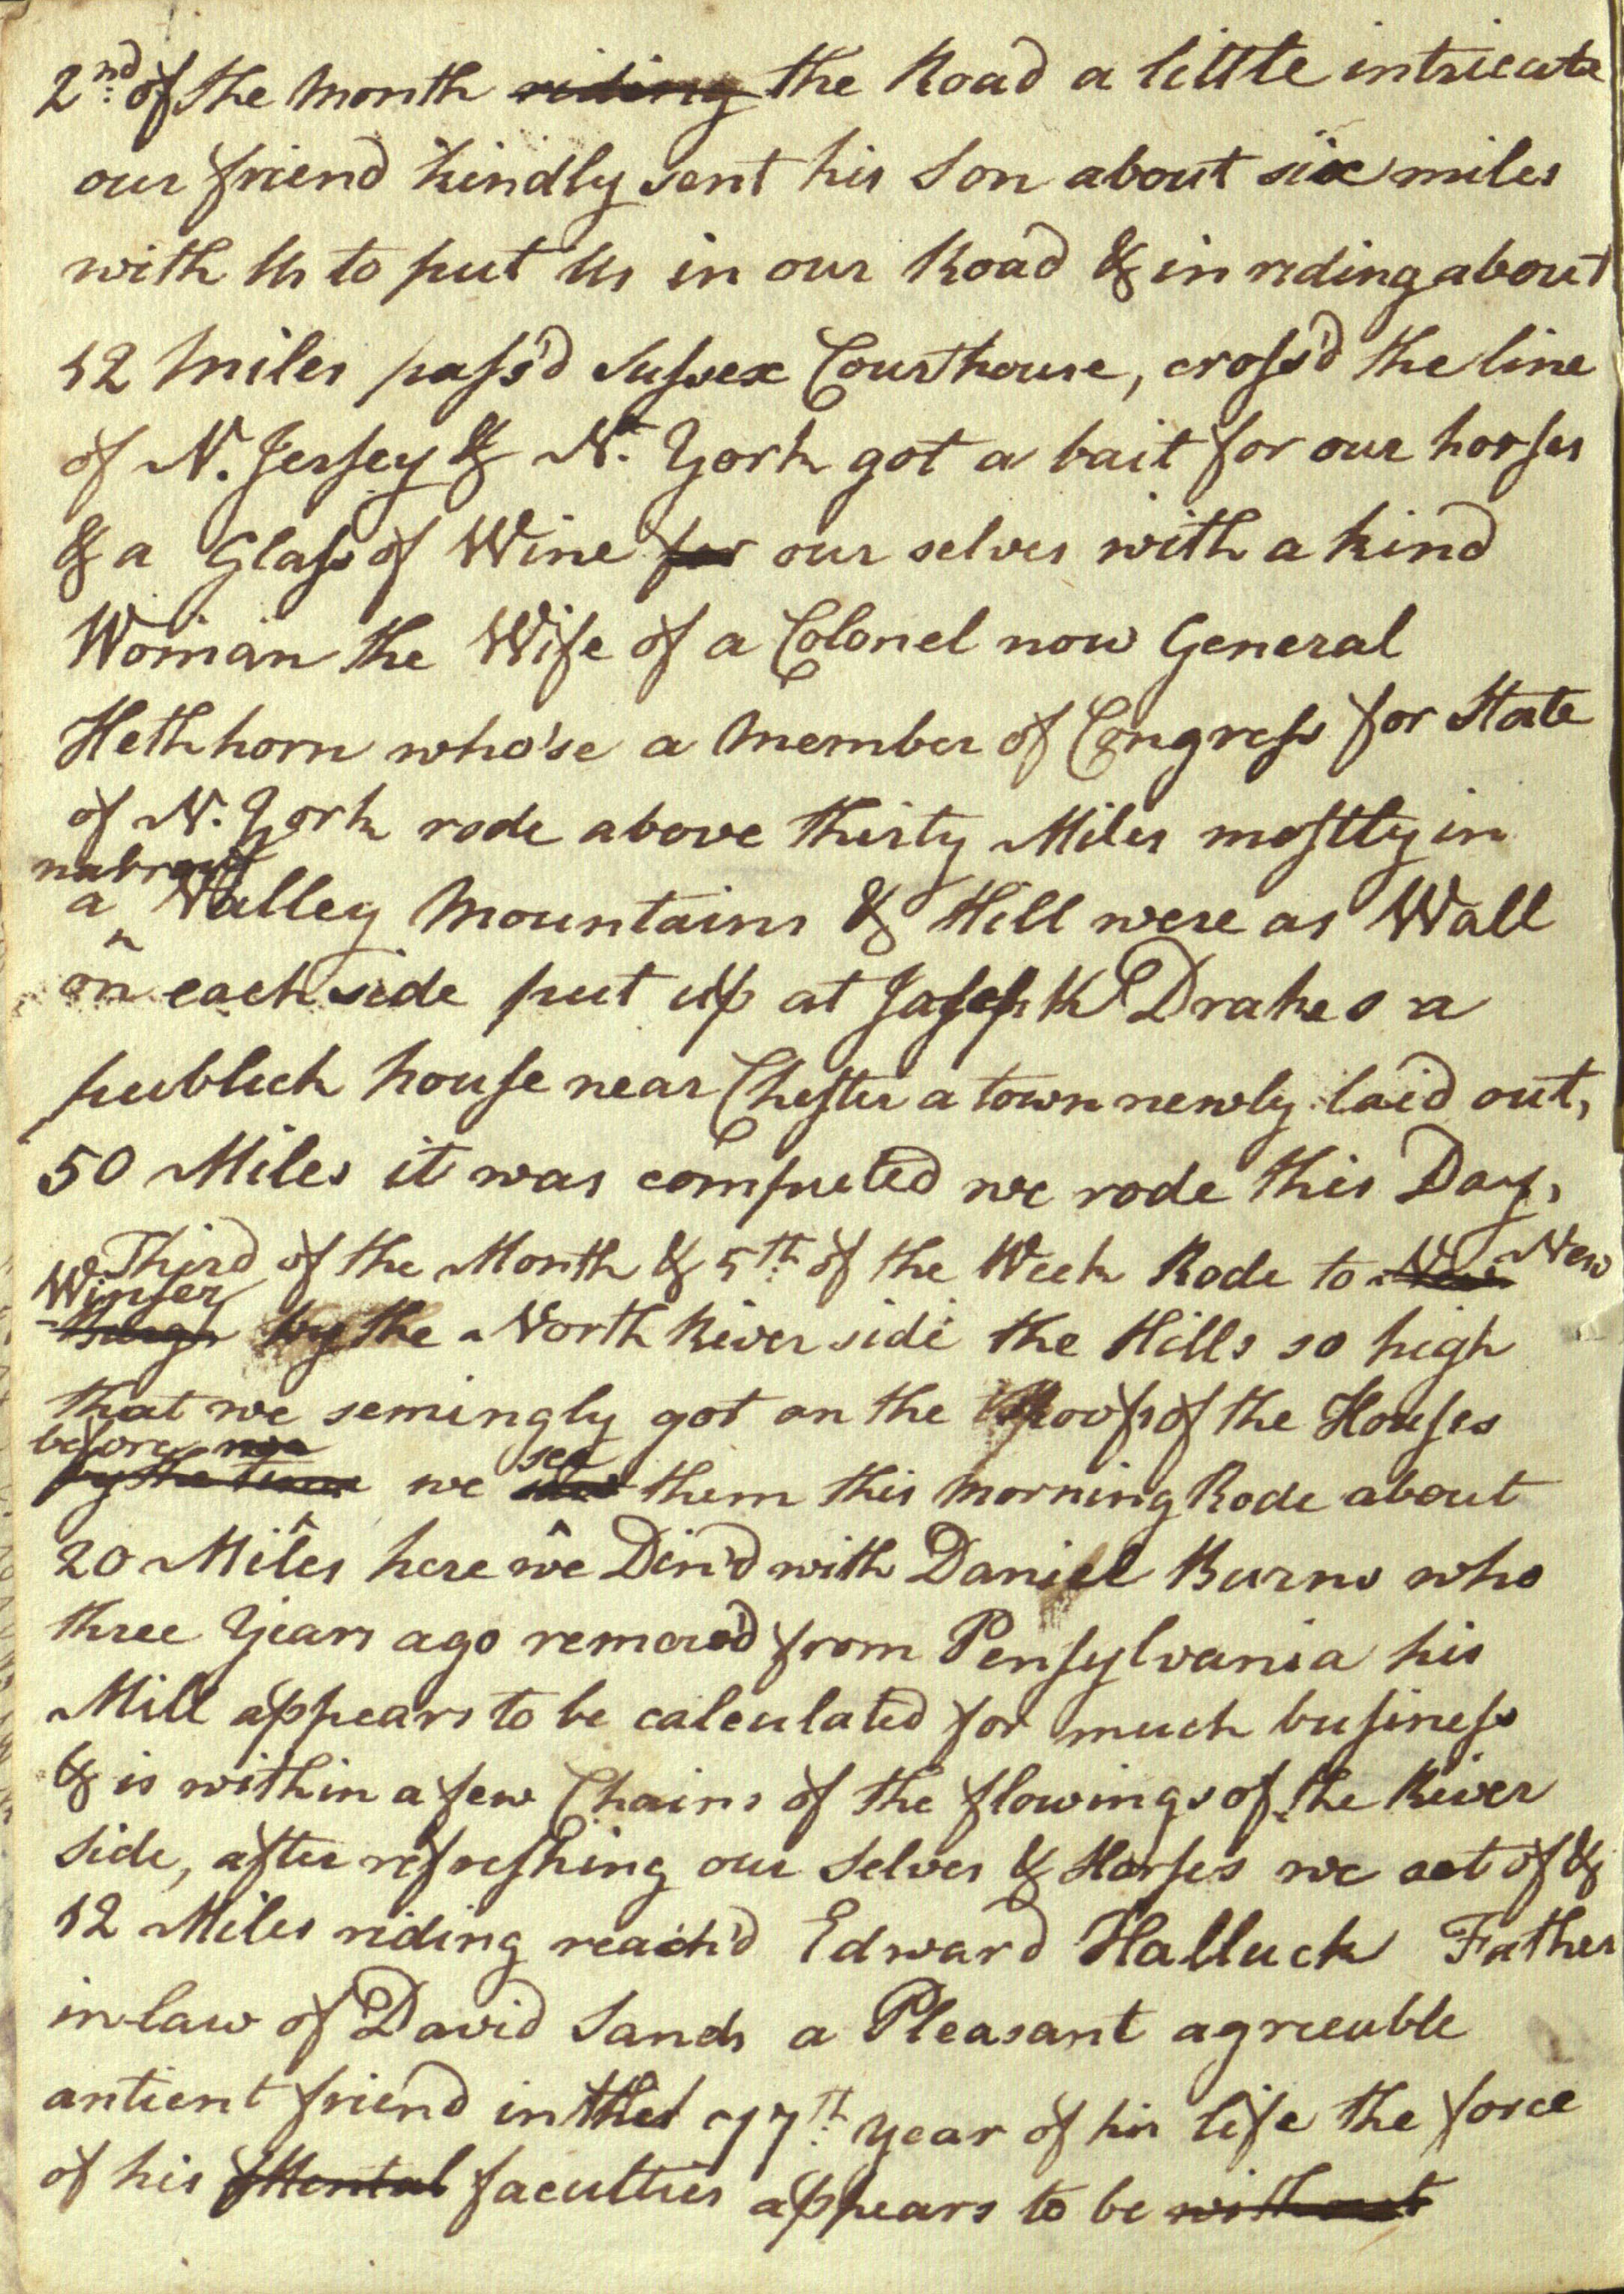 2nd. of the Month riding the Road a little intricate
our friend kindly sent his Son about six miles
with Us to put Us in our Road & in riding about
12 Miles pass'd Sussex Courthouse, cross'd the line
of N. Jersey & N. York got a bait for our horses
& a Glass of Wine for our selves with a kind
Woman the Wife of a Colonel now General
Hethhorn who'se a Member of Congress for State
of N. York rode above thirty Miles mostly in
a Valley Mountains & Hill were as Wall
on each side put up at Joseph Drakes a
publick house near Chester a town newly laid out,
50 Miles it was computed we rode this Day,
Third of the Month & 5th. of the Week Rode to New New
Winser
Burgh by the North River side the Hills so high
that we semingly got on the Roofs of the Houses
before we
by the time we see them this Morning Rode about
20 Miles here we Din'd with Daniel Burns who
three Years ago remov'd from Pensylvania his
Mill appears to be calculated for much business
& is within a few Chains of the flowings of the River
side, after refreshing our Selves & Horses we set of &
12 Miles riding reach'd Edward Halluck Father
in-law of David Sands a Pleasant agreeable
antient friend in the 77th. Year of his life the force
of his Mental faculties appears to be without